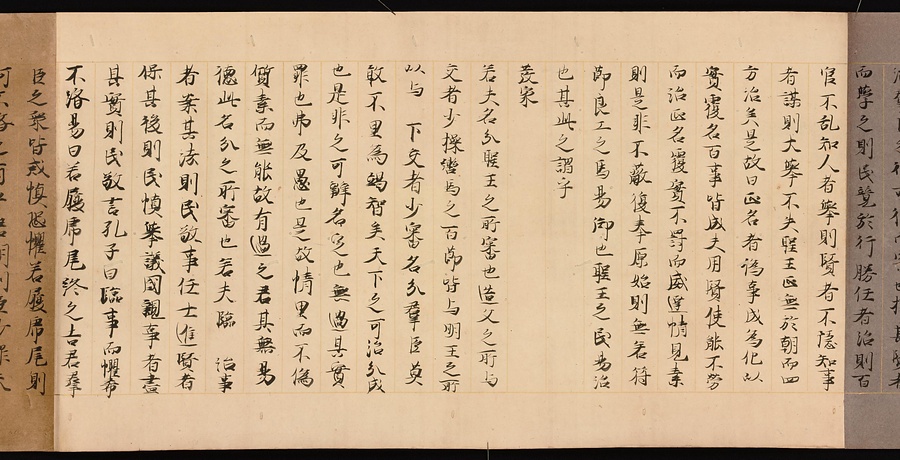 而舉之則民競於行勝任者治則百
官不乱知人者舉則賢者不隱知事
者謀則大舉不失聖王正無於朝而四
方治矣是故曰正名者偽事成為化以
實覆名百事皆成夫用賢使能不勞
而治正名覆實不罰而威達情見素
則是非不蔽復本原始則無若符
御良工之馬易御也聖王之民易治
也其此之謂乎
發蒙
若夫名分聖王之所審也造父之所与
交者少操轡馬之百節皆与明王之所
以与 下交者少審名分群臣莫
敢不盡力竭智矣天下之可治分成
也是非之可辯名定也無過其實
罪也弗及愚也是故情盡而不偽
質素而無能故有道之君其無易
德此名分之所審也若夫臨 治事
者案其法則民敬事任士進賢者
保其後則民慎舉議國親事者盡
其實則民敬言孔子曰臨事而懼希
不濟易曰若履虎尾終之吉若群
臣之衆皆戒慎恐懼若履虎尾則